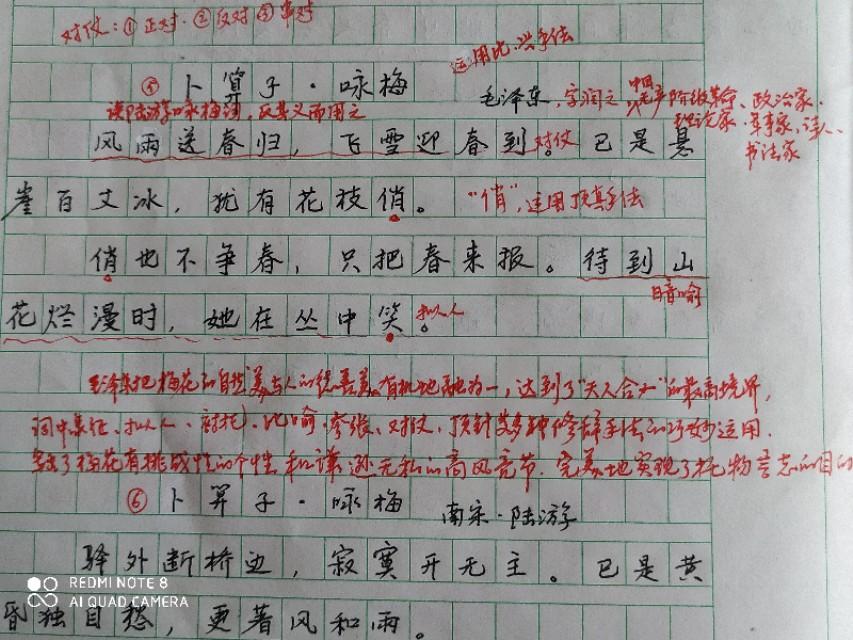 对仗：①正对·②反对③串对
运用比、兴手法
⑤卜算子·咏梅
毛泽东，字润之，中国无产阶级革命、政治家·
理论家·军事家，诗人、
书法家
读陆游咏梅词，反其义而用之
风雨送春归，飞雪迎春到。对仗 已是悬
崖百丈冰，犹有花枝俏。“俏”，运用顶真手法
俏也不争春，只把春来报。待到山
暗喻
花烂漫时，她在丛中笑。拟人
毛泽东把梅花的自然美与人的德善美有机地融为一，达到了“天人合一”的最高境界，
词中象征、拟人、衬托、比喻、夸张、对仗、顶针等多种修辞手法的巧妙运用．
了梅花有挑战性的个性和谦逊无私的高风亮节．完美地实现了托物言志的目的
⑥卜算子·咏梅 南宋·陆游
驿外断桥边，寂寞开无主。已是黄
昏独自愁，更著风和雨。
REDMI NOTE 8
AI QUAD CAMERA